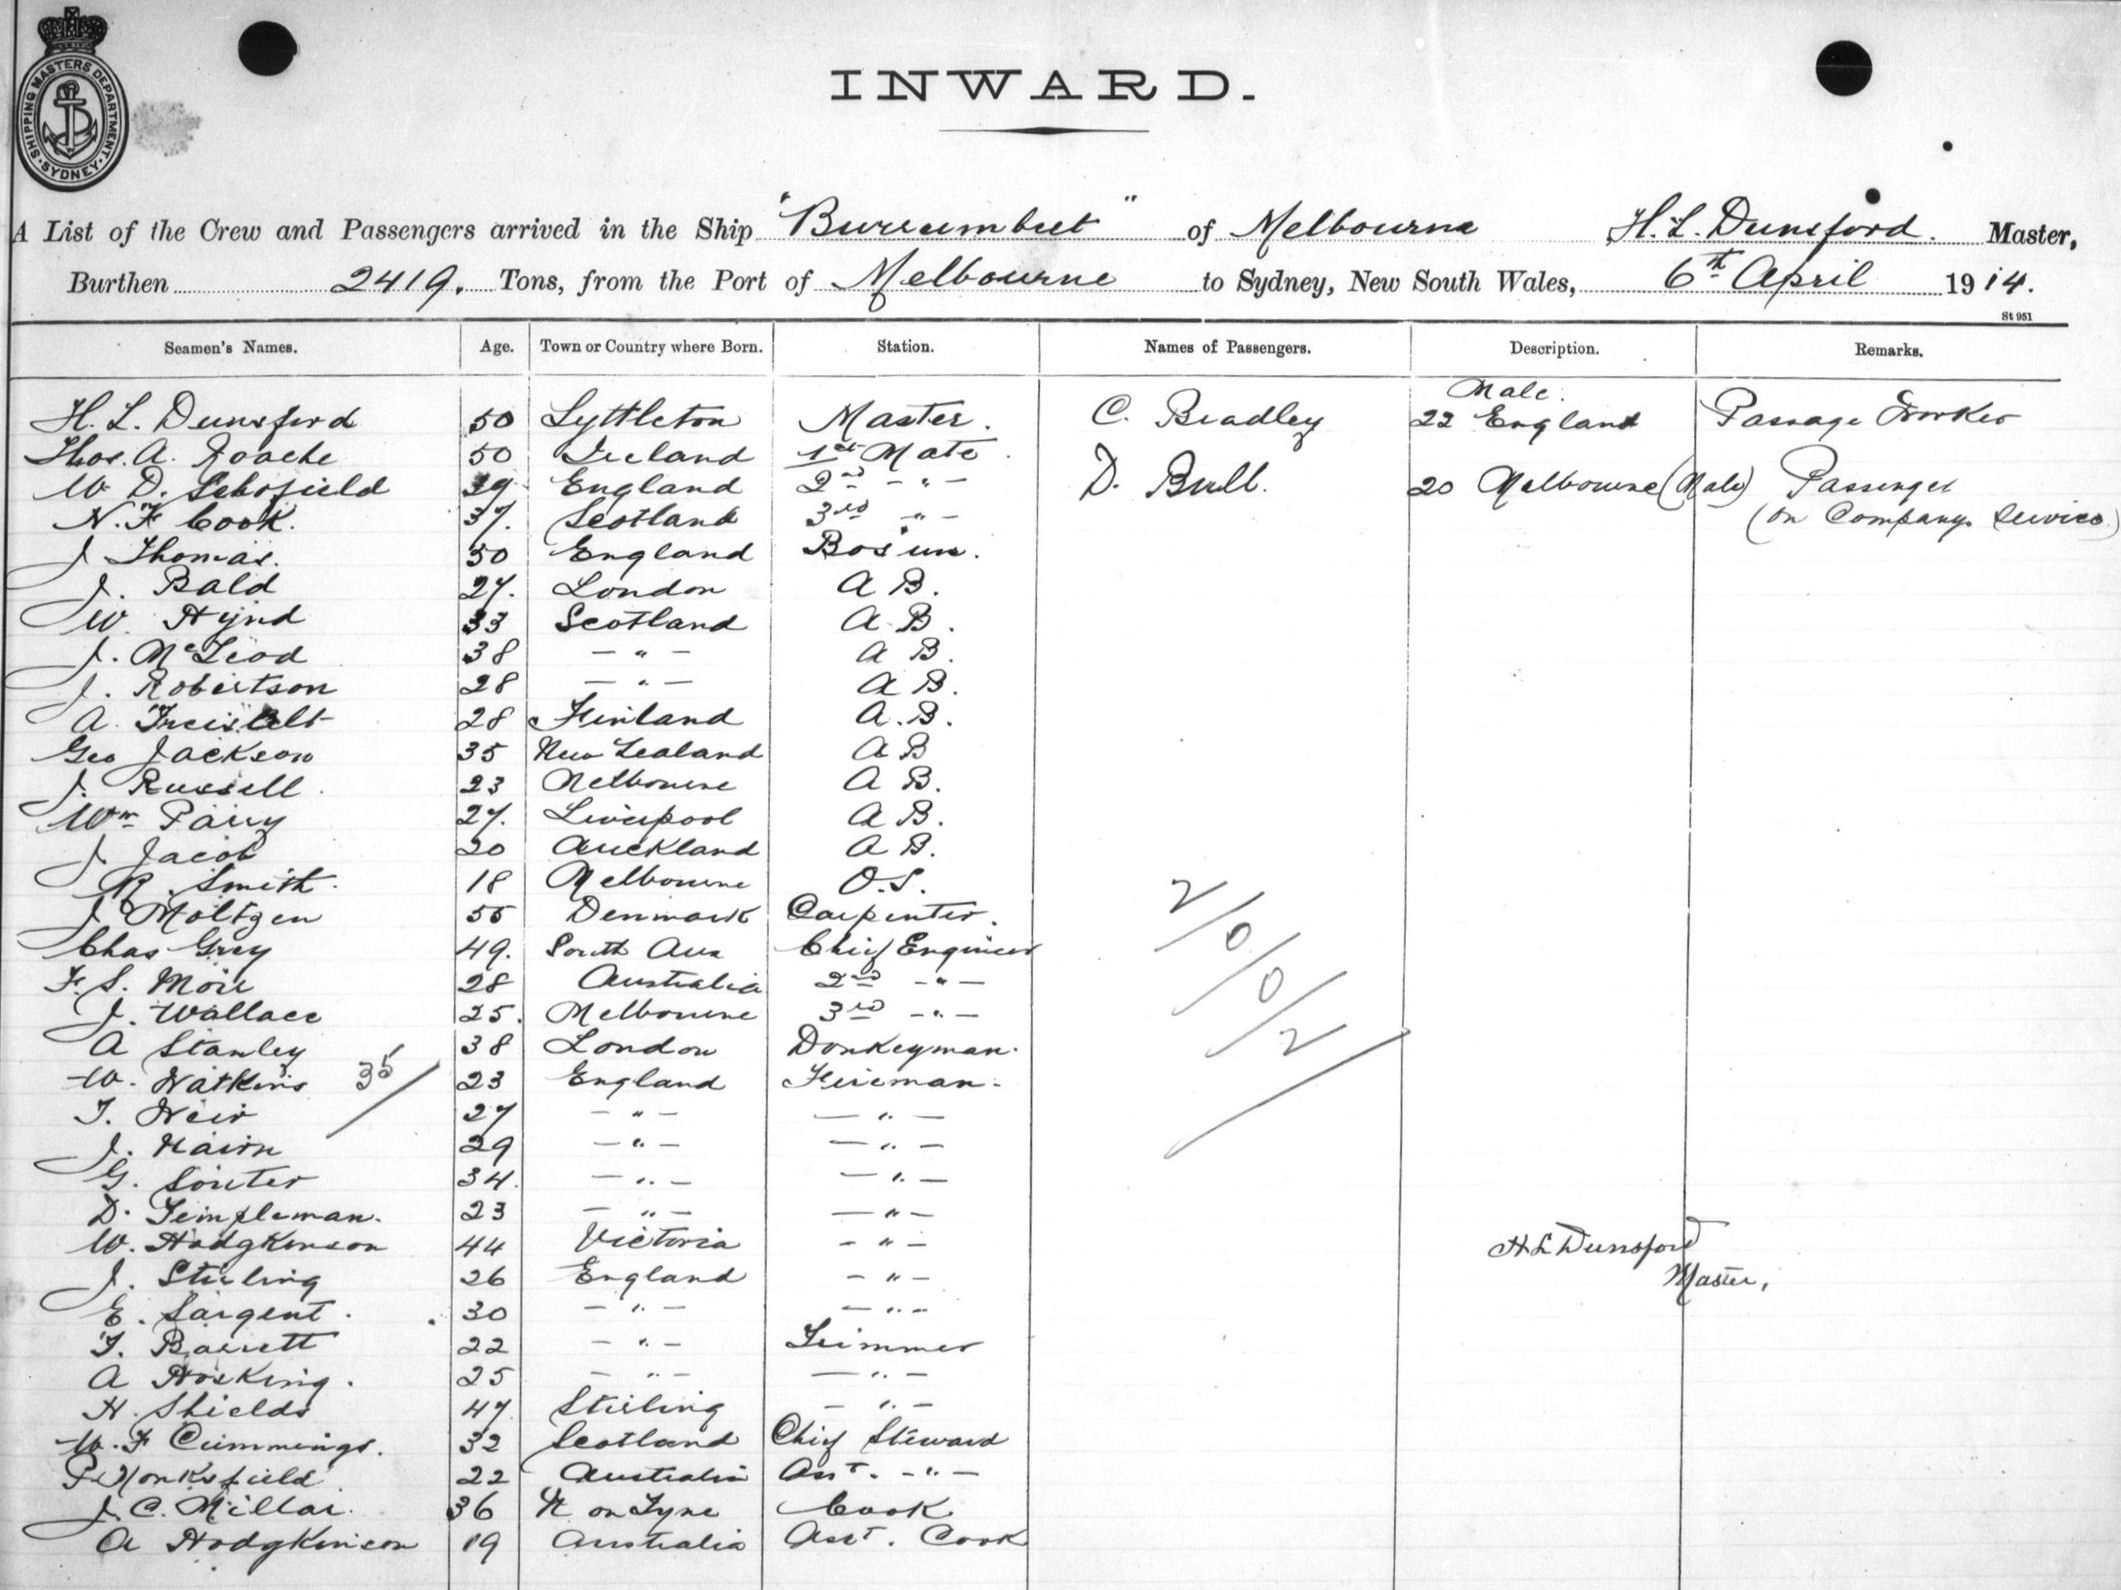 SHIPPING MASTERS DEPARTMENT · SYDNEY ·
INWARD.
A List of the Crew and Passengers arrived in the Ship "Burrumbeet" of Melbourne H. L. Dunsford. Master,
Burthen 2419. Tons, from the Port of Melbourne to Sydney, New South Wales, 6th April 1914.
St 951
Seamen's Names. Age. Town or Country where Born. Station. Names of Passengers. Description. Remarks.
Male.
H. L. Dunsford 50 Lyttleton Master. C. Bradley 22 England Passage Worker
Thos. A. Roache 50 Ireland 1st Mate D. Bull. 20 Melbourne (Male) Passenger
W. D. Schofield 39 England 2nd - " - (on Companys Service)
N. F Cook. 37. Scotland 3rd - " -
J Thomas. 50 England Bos'un.
J. Bald 27. London A B.
W. Hynd 33 Scotland A. B.
J. McLeod 38 - " - A B.
J. Robertson 28 - " - A B.
A. 28 Finland A. B.
Geo Jackson 35 New Zealand A B
J. Russell 23 Melbourne A B.
Wm Parry 27. Liverpool A B.
J Jacob 20 Auckland A B.
R. Smith. 18 Melbourne O.S.
J Moltzen 55 Denmark Carpenter.
Chas Grey 49. South Aus Chief Engineer
F. S. Moir 28 Australia 2nd - " -
J. Wallace 25. Melbourne 3rd - " -
A Stanley 38 London Donkeyman.
W. Watkins 23 England Fireman.
T. Weir 27 - " - - " -
J. Nairn 29 - " - - " -
G. Souter 34 - " - - " -
D. Templeman. 23 - " - - " -
W. Hodgkinson 44 Victoria - " -
J. Stirling 26 England - " -
E. Sargent. 30 - " - - " -
T. Barrett 22 - " - Trimmer
A Hosking. 25 - " - - " -
H. Shields 47 Stirling - " -
W. F Cummings. 32 Scotland Chief Steward
P. Monksfield 22 Australia Asst. - " -
J. C. Millar. 36 N on Tyne Cook
A Hodgkinson 19 Australia Asst. Cook
35/
2/0/0/2/
H L Dunsford
Master,